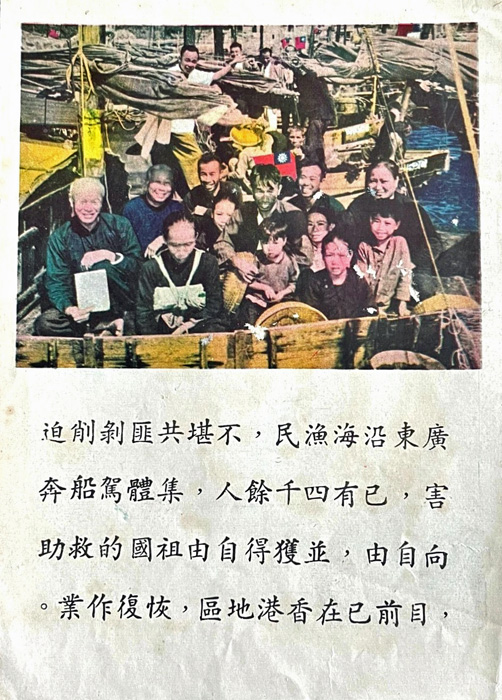 廣東沿海漁民，不堪共匪剝削迫
害，已有四千餘人，集體駕船奔
向自由，並獲得自由祖國的救助
，目前已在香港地區，恢復作業。